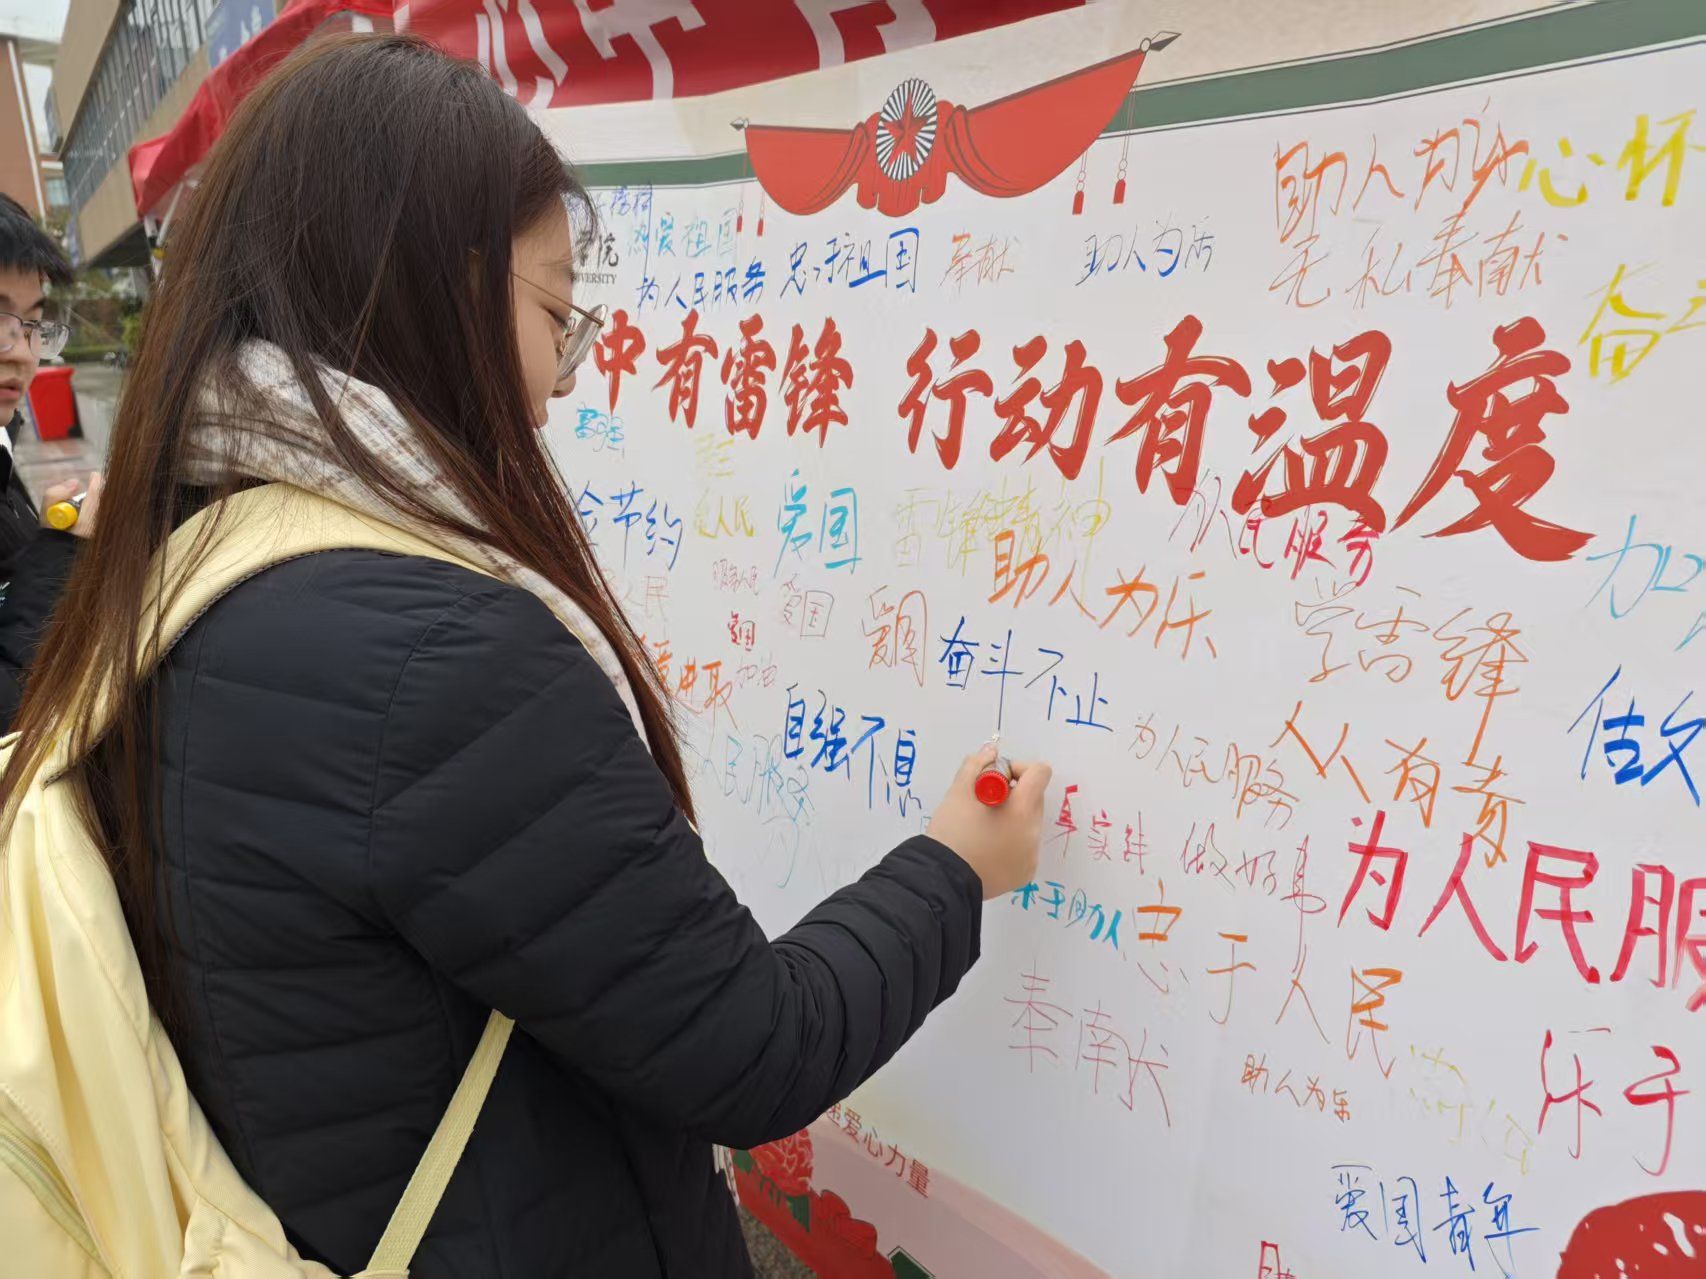 助人为乐
心怀
无私奉献
热爱祖国
为人民服务
忠于祖国
奉献
助人为乐
院
VERSITY
中有雷锋 行动有温度
节约
爱人民
爱国
雷锋精神
为人民服务
助人为乐
服务人民
爱国
爱国
爱国
奋斗不止
学雷锋
进取
加油
自强不息
为人民服务
人人有责
人民服务
做好事
为人民服
乐于助人
忠于人民
奉献
助人为乐
乐于
爱心力量
爱国青年